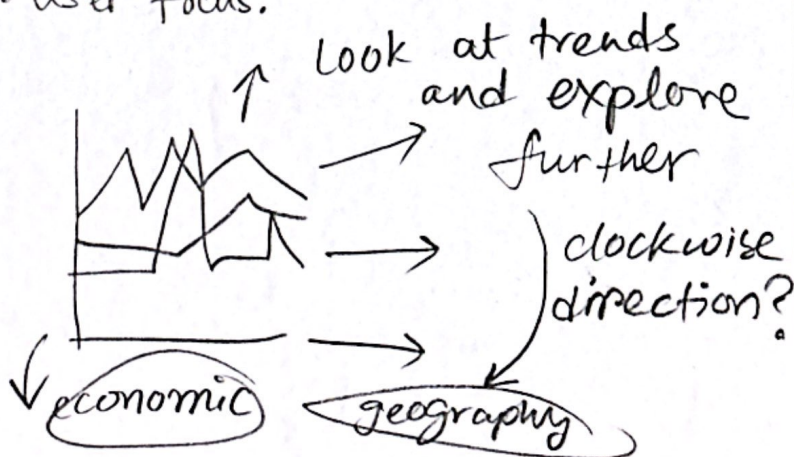 user focus.
Look at trends
and explore
further
clockwise
direction?
economic
geography